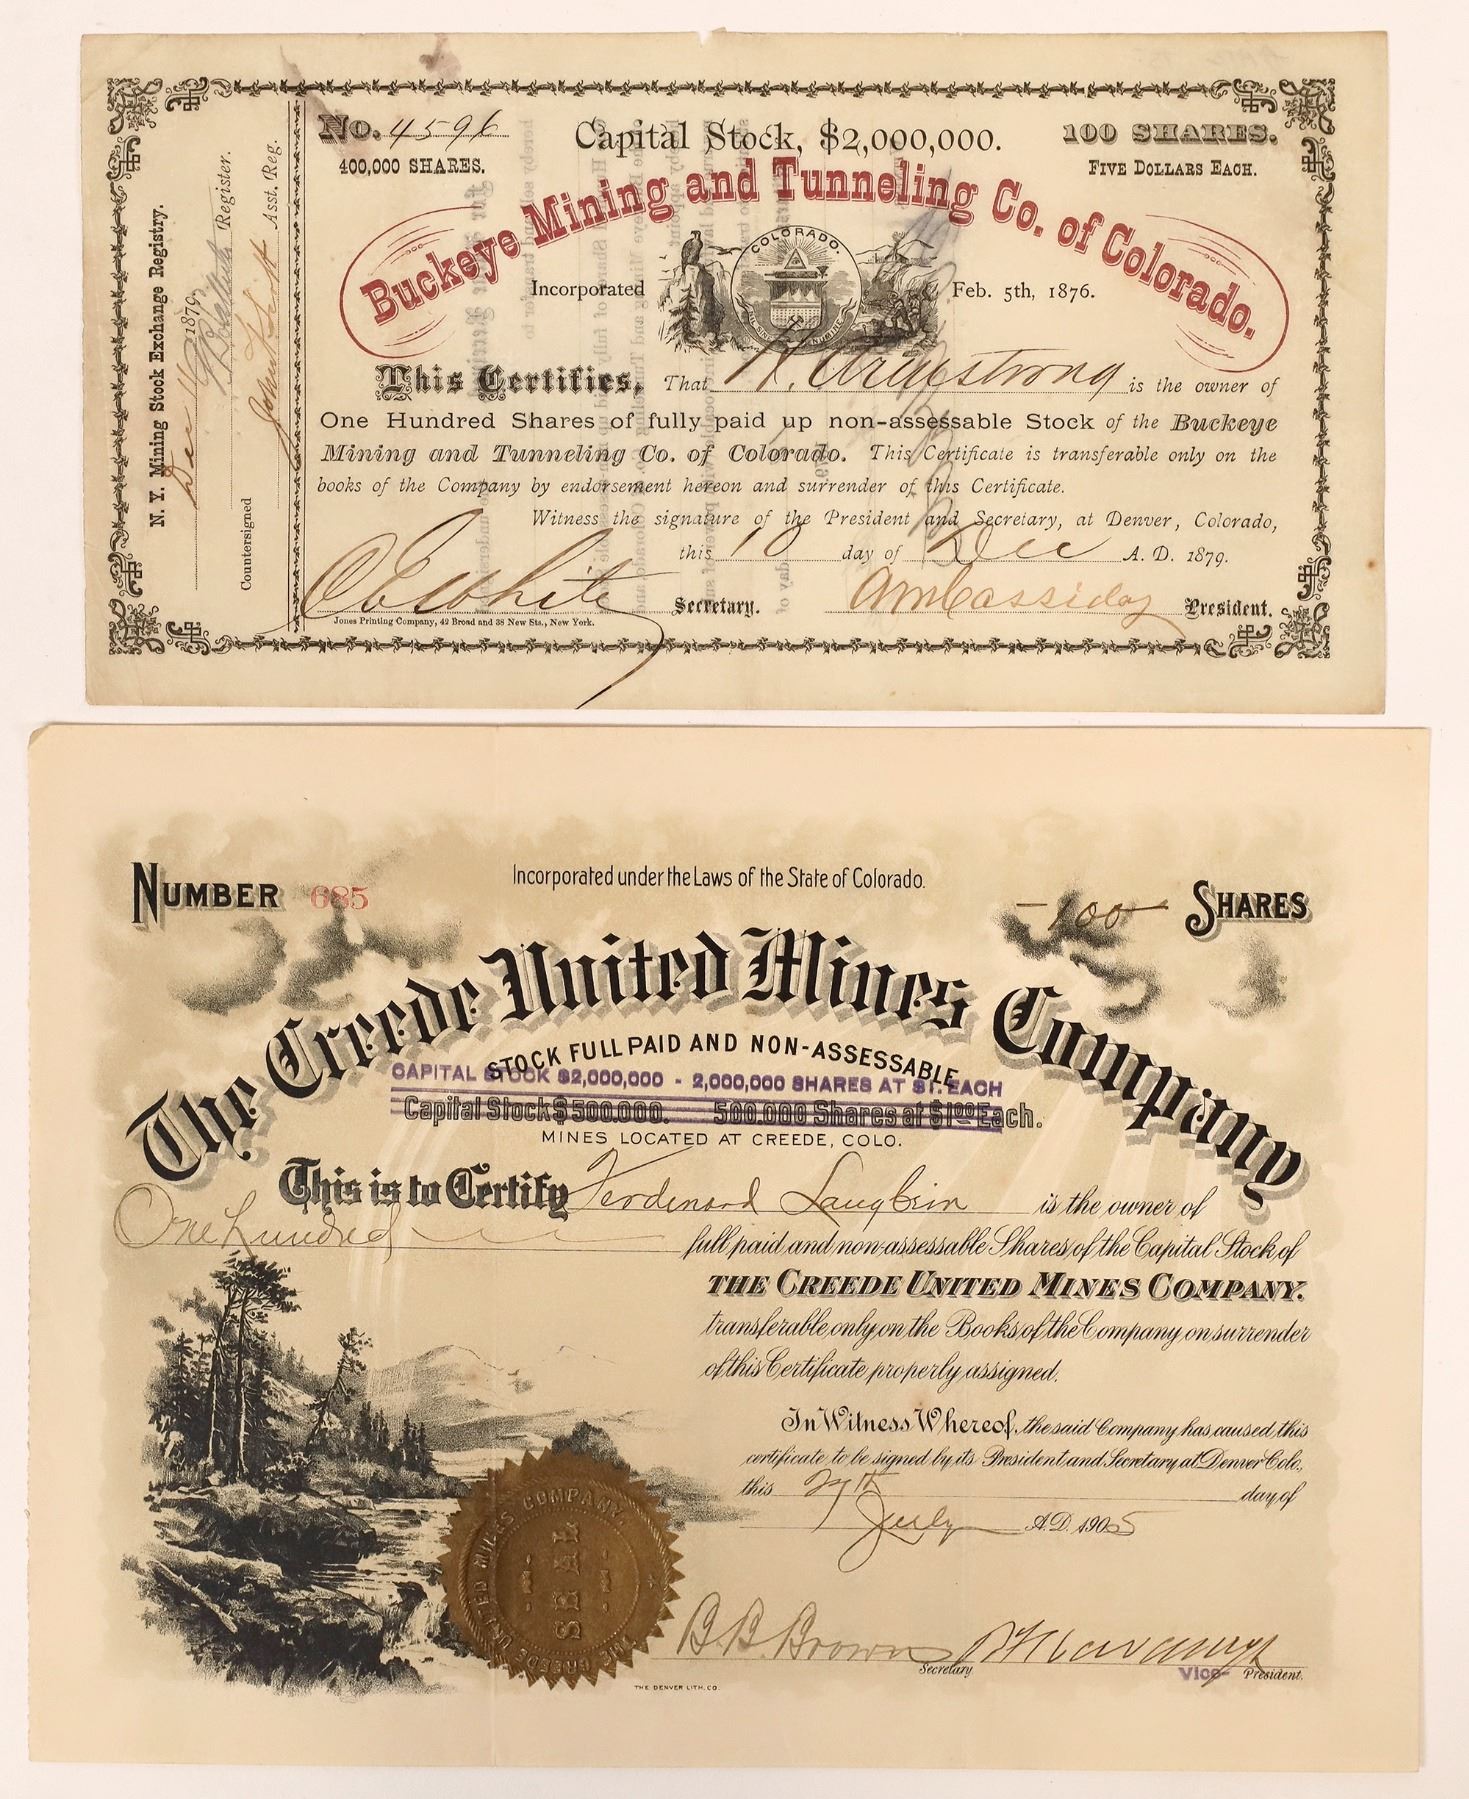 No. 4596
Capital Stock, $2,000,000.
100 SHARES.
400,000 SHARES.
FIVE DOLLARS EACH.
Buckeye Mining and Tunneling Co. of Colorado.
COLORADO.
NIL SINE NUMINE
Incorporated Feb. 5th, 1876.
This Certifies, That H. Armstrong is the owner of
One Hundred Shares of fully paid up non-assessable Stock of the Buckeye
Mining and Tunneling Co. of Colorado. This Certificate is transferable only on the
books of the Company by endorsement hereon and surrender of this Certificate.
Witness the signature of the President and Secretary, at Denver, Colorado,
this 10 day of Dec A. D. 1879.
White Secretary. AM Cassiday President.
Jones Printing Company, 42 Broad and 38 New Sts., New York.
N. Y. Mining Stock Exchange Registry.
Dec 11 1879
Register.
Countersigned
John Scott Asst. Reg.
NUMBER 685
Incorporated under the Laws of the State of Colorado.
-100- SHARES
The Creede United Mines Company
STOCK FULL PAID AND NON-ASSESSABLE
CAPITAL STOCK $2,000,000 - 2,000,000 SHARES AT $1. EACH
Capital Stock $500.000. 500.000 Shares at $1.00 Each.
MINES LOCATED AT CREEDE, COLO.
This is to Certify Ferdenand is the owner of
One hundred full paid and non-assessable Shares of the Capital Stock of
THE CREEDE UNITED MINES COMPANY.
transferable only on the Books of the Company on surrender
of this Certificate properly assigned.
In Witness Whereof, the said Company has caused this
certificate to be signed by its President and Secretary, at Denver Colo.,
this 27th day of
July A.D. 1905
THE CREEDE UNITED MINES COMPANY
SEAL
B. B. Brown Secretary
Vice- President.
THE DENVER LITH. CO.